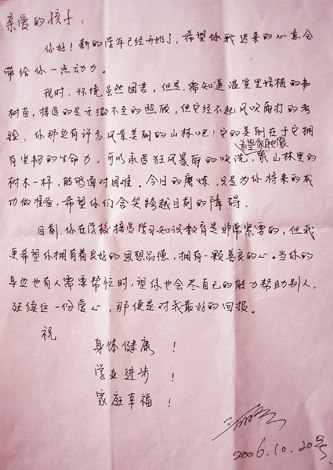 亲爱的孩子：
你好！新的学年已经开始了，希望你我迟来的心意会
带给你一点动力。
现时，环境虽然困苦，但是，需知道温室里培植的
树苗，接受的是无微不至的照顾，但它经不起风吹雨打的考
验，你那边有许多风景美丽的山林吧！它的美丽在于它拥
有坚韧的生命力，可以承受狂风暴雨的吹洗，
树木一样，能够面对困难。今日的磨炼，只是为你将来的成
功作准备，希望你们会笑着跨越目前的障碍。
目前，你在学校接受学习知识教育是非常紧要的，但我
更希望你拥有着良好的思想品德，拥有一颗善良的心。当你的
身边也有人需要帮忙时，望你也会尽自己的能力帮助别人，
延续这一份爱心，那便是对我最好的回报。
祝
身体健康！
学业进步！
家庭幸福！
2006.10.20号